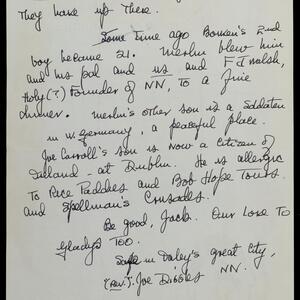 They have up there.
Some time ago Bowen's 2nd
boy became 21. Merlin blew him
and his pal and us and F Walsh,
Holy(?) Founder of NN, to a fine
dinner. Merlin's other son is a soldaten
in W. Germany, a peaceful place.
Joe Carroll's son is now a citizen of
- at Dublin. He is allergic
To Rice Paddies and Bob Hope Tours.
and Spellman's Crusades.
Be good, Jack. Our love to
Gladys Too.
Safe in Daley's great city,
(Rev.) Joe Dibbs NN.